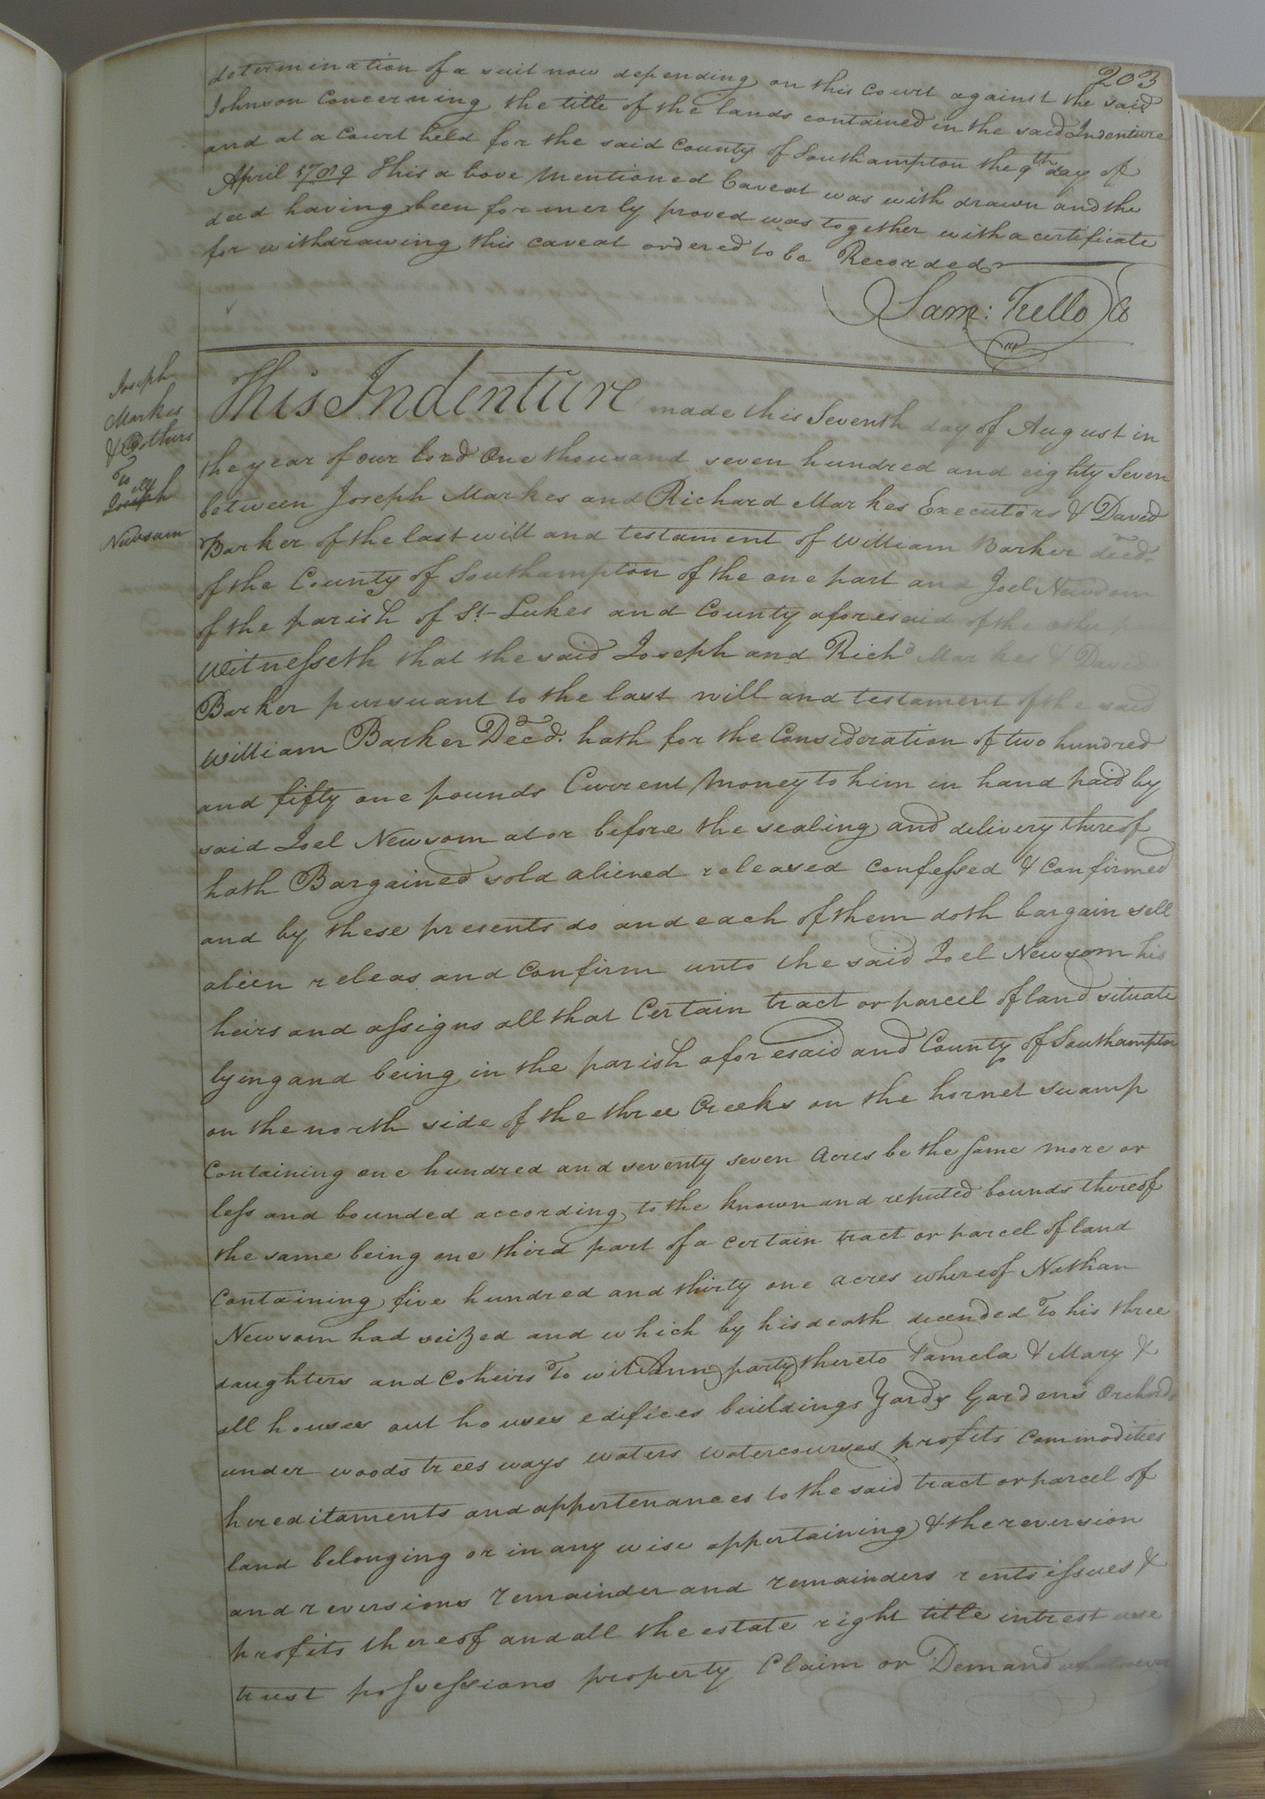 203
determination of a suit now depending on this Court against the said
Johnson Concerning the title of the lands contained in the said Indenture
and at a Court held for the said County of Southampton the 9th day of
April 1789 This above Mentioned Caveat was with drawn and the
deed having been formerly proved was together with a certificate
for withdrawing this caveat ordered to be Recorded
Sam: Kello
Joseph
Markes
& others
To
Joseph
Newsom
This Indenture made this Seventh day of August in
the year of our lord One thousand seven hundred and eighty Seven
between Joseph Markes and Richard Markes Executors & David
Barker of the last will and testament of William Barker decd.
of the County of Southampton of the one part and Joel Newsom
of the parish of St. Lukes and County aforesaid of the other
Witnesseth that the said Joseph and Richd Markes & David
Barker pursuant to the last will and testament of the said
William Barker Decd. hath for the Consideration of two hundred
and fifty one pounds Current Money to him in hand paid by
said Joel Newsom at or before the sealing and delivery thereof
hath Bargained sold aliened released confessed & Confirmed
and by these presents do and each of them doth bargain sell
alien releas and Confirm unto the said Joel Newsom his
heirs and assigns all that Certain tract or parcel of land situate
lying and being in the parish aforesaid and County of Southampton
on the north side of the three Creeks on the hornet swamp
Containing one hundred and seventy seven Acres be the same more or
less and bounded according to the known and reputed bounds thereof
the same being one third part of a certain tract or parcel of land
Containing five hundred and thirty one acres whereof Nathan
Newsom had seized and which by his death decended To his three
daughters and Coheirs To wit Ann (party) thereto Pamela & Mary &
all houses out houses edifices buildings Yards Gardens Orchards
under woods trees ways waters watercourses profits Commodities
hereditaments and appertenances to the said tract or parcel of
land belonging or in any wise appertaining & the reversion
and reversions remainder and remainders rents issues &
profits thereof and all the estate right title intrest use
trust possessions property Claim or Demand whatsoever